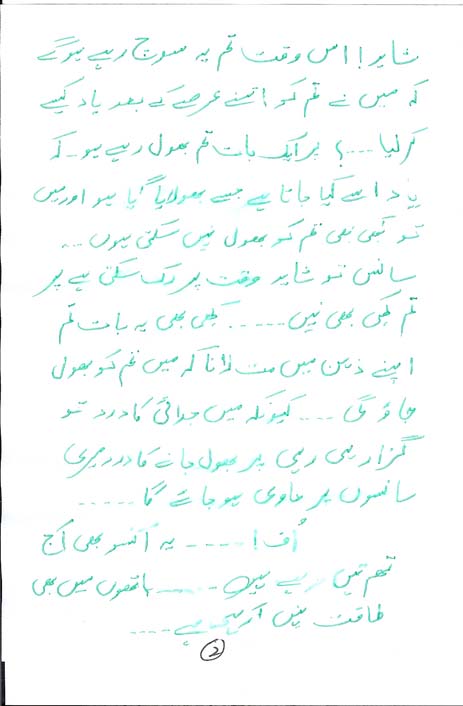 شاید! اس وقت تم یہ سوچ رہے ہوگے
کہ میں نے تم کو اتنے عرصے کے بعد یاد کیسے
کرلیا ....؟ پر ایک بات تم بھول رہے ہو۔ کہ
یاد اسے کیا جاتا ہے جسے بھولایا گیا ہو اور میں
تو کبھی بھی تم کو بھول نہیں سکتی ہوں ...
سانس تو شاید وقت پر رک سکتی ہے پر
تم کبھی بھی نہیں ..... کبھی بھی یہ بات تم
اپنے ذہن میں مت لانا کہ میں تم کو بھول
جاؤ گی .... کیونکہ میں جدائی کا درد تو
گزار رہی پر بھول جانے کا درد میری
سانسوں پر حاوی ہو جائے گا .....
اُف! .... یہ آنسو بھی آج
تھم نہیں رہے ہیں ..... ہاتھوں میں بھی
طاقت نہیں ....
2